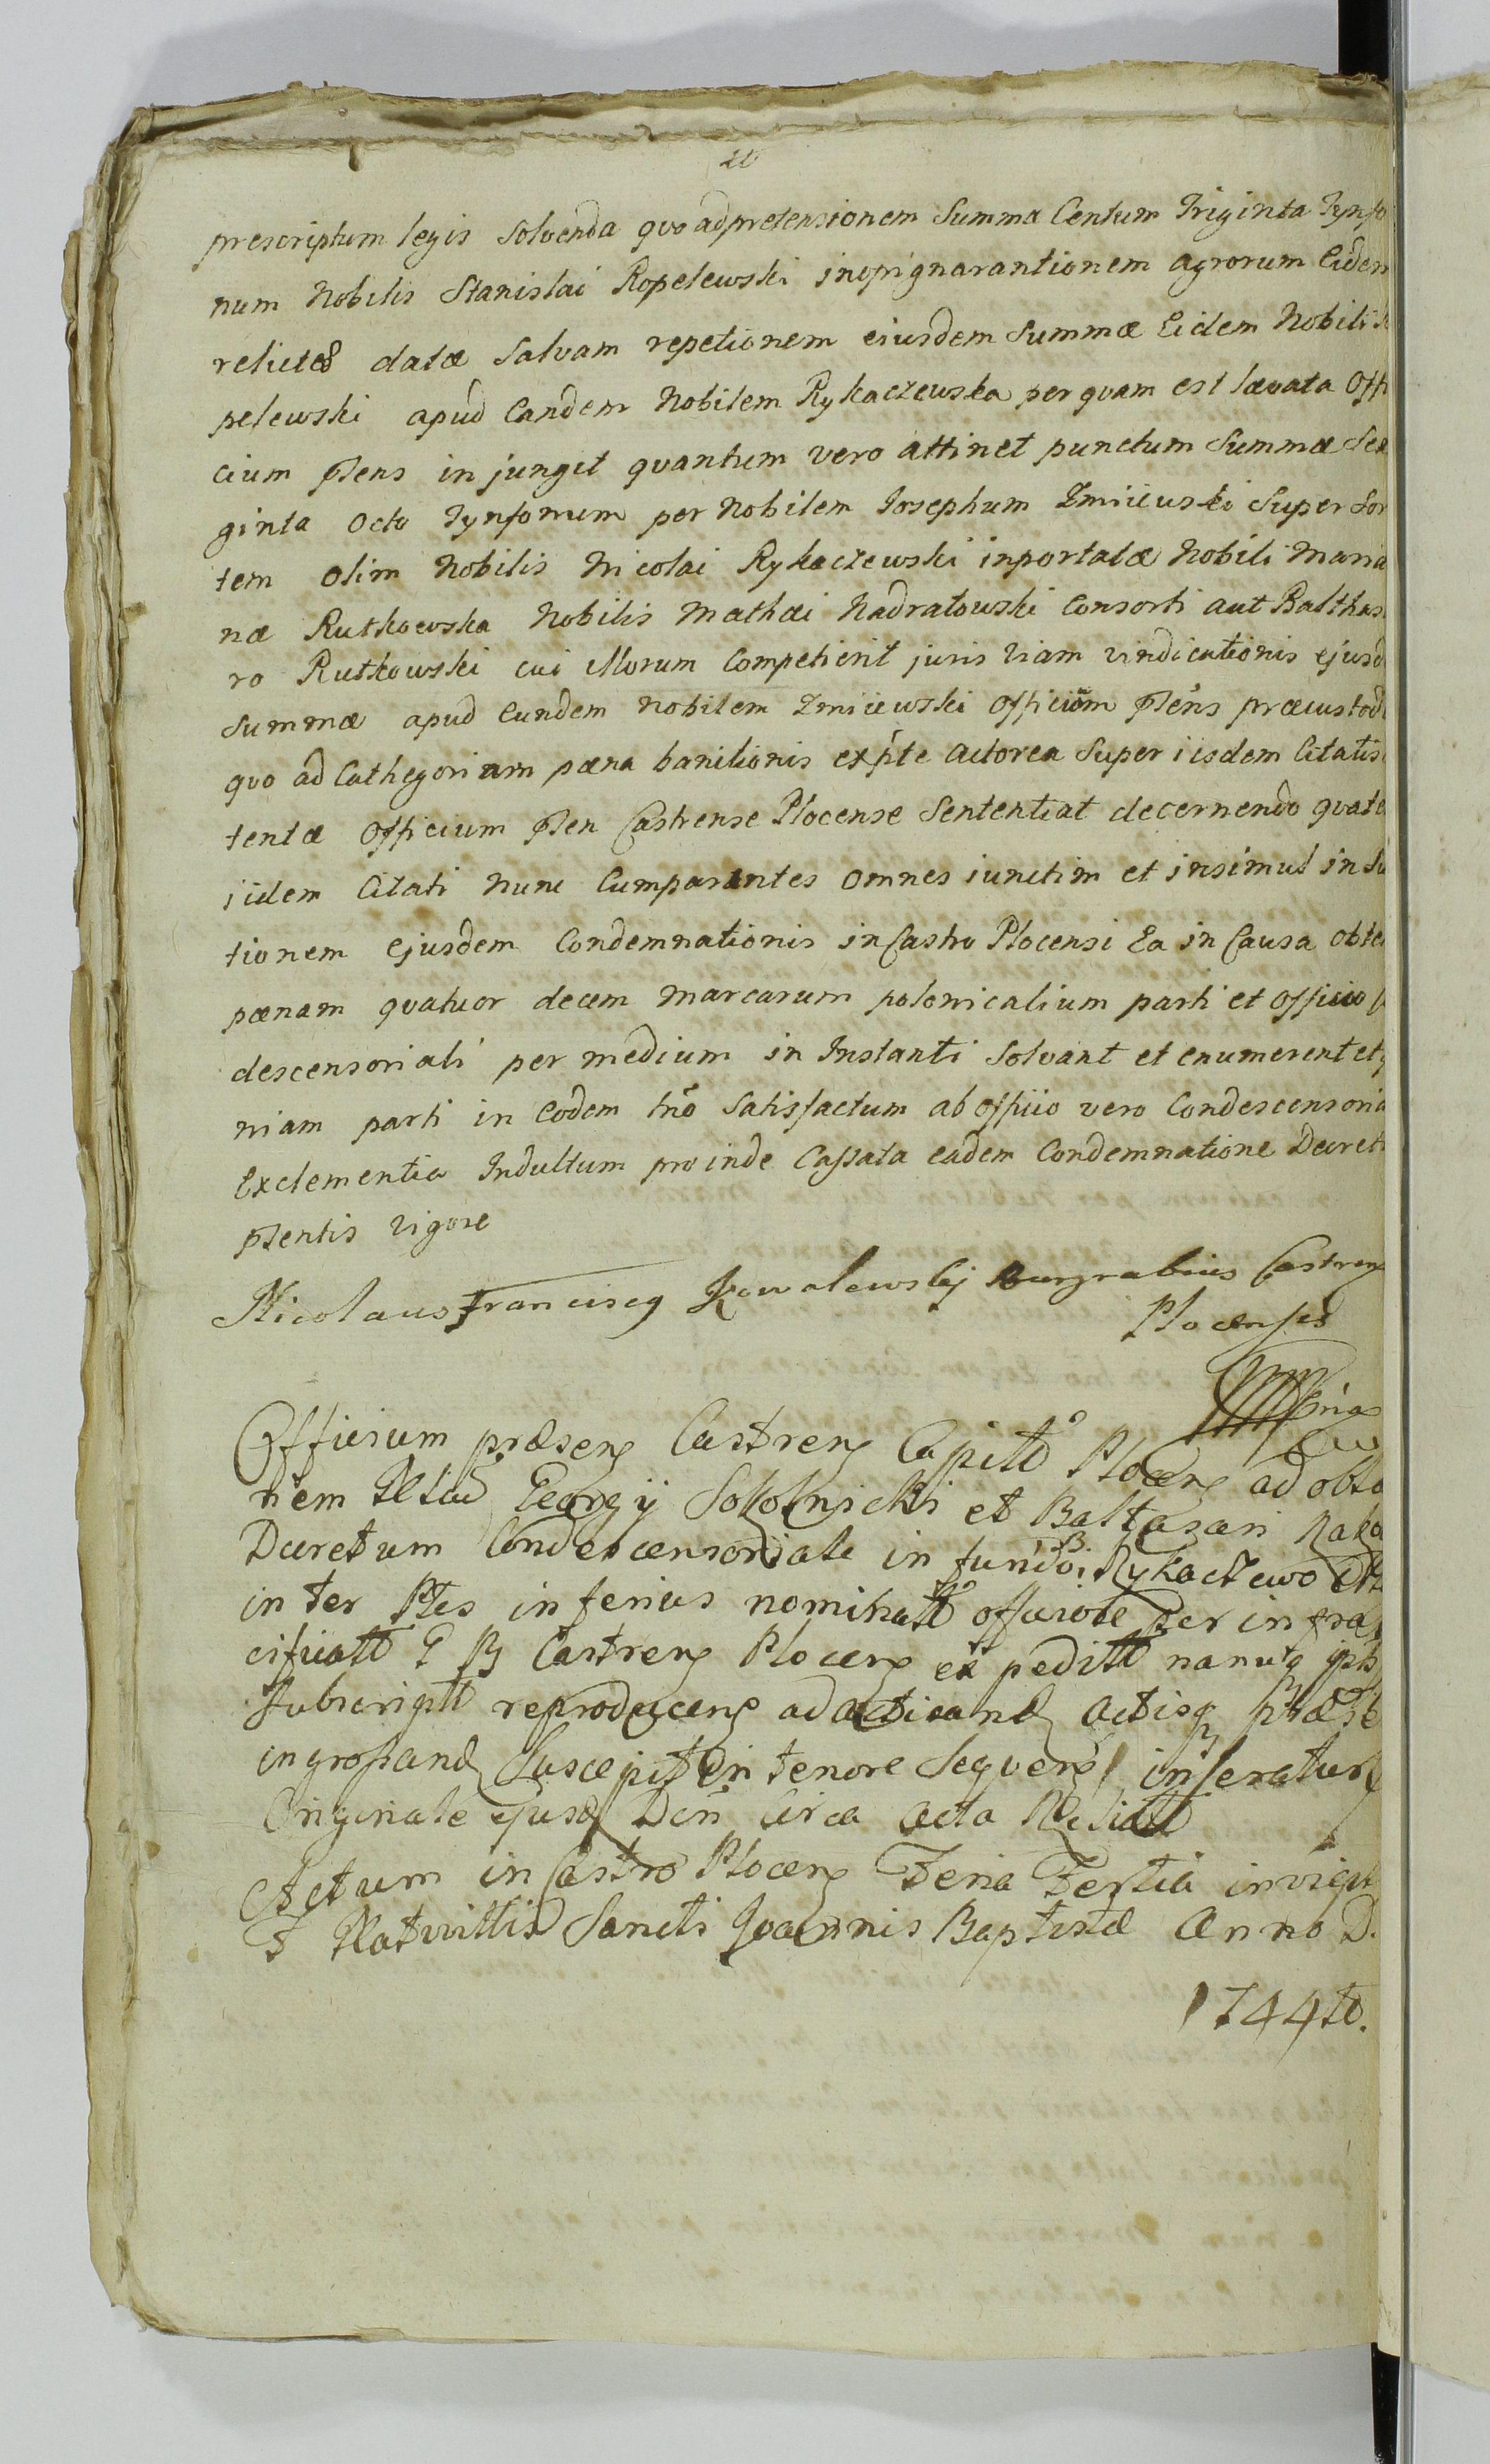 prescriptum legis solvenda quo ad pretensionem Summa Centum Triginta Tynfo
num Nobilis Stanislai Ropelewski inopignarantionem agrorum Eidem
relictæ datæ salvam repetionem eiusdem Summæ Eidem Nobili
pelewski apud Eandem Nobilem Rykaczewska per quam est lævata Offi
cium pñens in jungit quantum vero attinet punctum Summæ Sex
ginta Octo Tynforum per Nobilem Josephum Zmiiewski Super Sor
tem Olim Nobilis Nicolai Rykaczewski inportatæ Nobili Maria
næ Rutkowska Nobilis Mathæi Nadratowski Consorti aut Balthas
ro Rutkowski cui illorum Competierit juris viam vindicationis ejusd
Summæ apud Eundem Nobilem Zmiiewski Officium pñens præcustod
quo ad Cathegoriam pæna banitionis ex pte Actorea Super iisdem Citatis
tentæ Officium pñen Castrense Plocense Sententiat decernendo quate
iidem Citati Nunc Cumparantes Omnes iunctim et insimul in
tionem ejusdem Condemnationis in Castro Plocensi Ea in Causa obte
pænam quatuor decem Marcarum polonicalium parti et Officio
descensoriali per medium in Instanti Solvant et enumerent et
niam parti in Eodem tnõ Satisfactum ab offiio vero Condescensoria
Exclementia Indultum proinde Cassata eadem Condemnatione Decreti
pñentis vigore
Nicolaus Franciscg Kowalewskj Burgrabius Castren
Plocensis
Officium præsens Castrens Capitõ Plocens ad obla
nem Georgij Sokolnicki et Baltasari
Decretum Condescensoriale in fundo Rykaczewo
inter Ptes inferius nominatt officiose per infra
Castrens Plocens expeditt
subscriptt reproducens ad acticand actisq præse
ingrossand Suscepit in tenore Sequens inseratur
Originale ejusd circa Acta
Actum in Castro Plocens Feria Tertia in vigil
F Nativittis Sancti Joannis Baptistæ Anno D.
1744to.